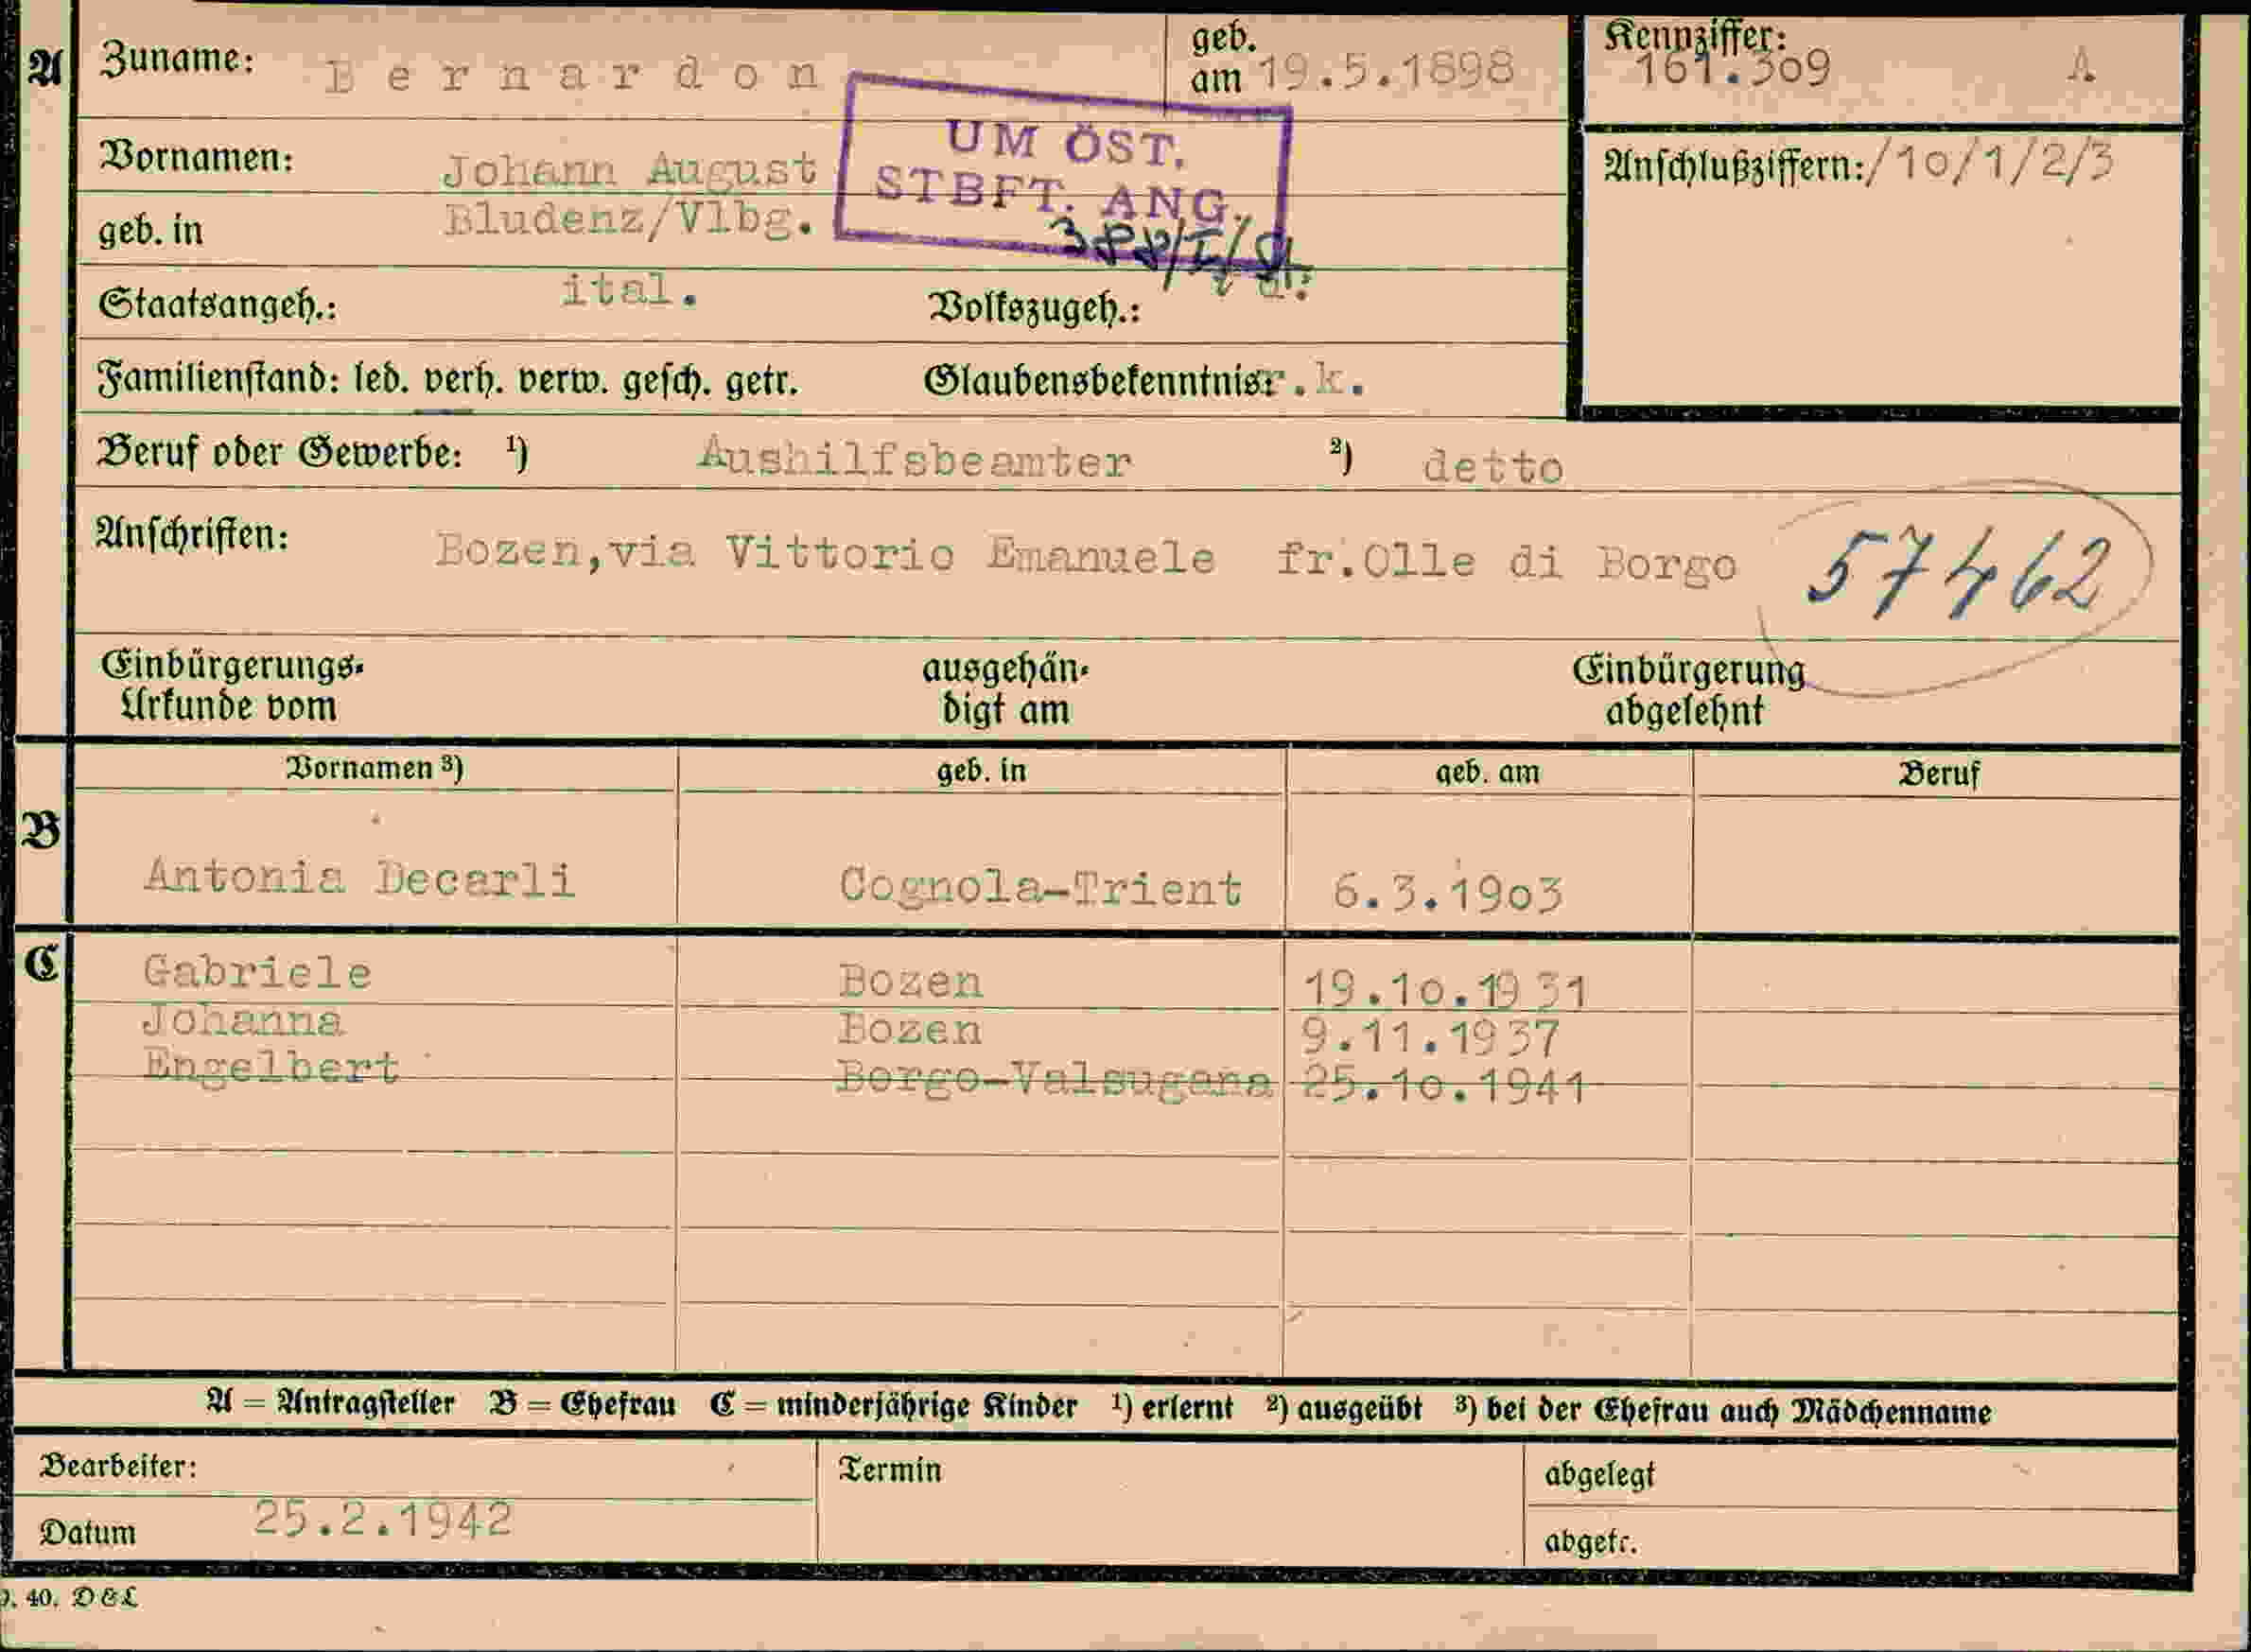 A Zuname: Bernardon geb. am 19.5.1898 Kennziffer: 161.309 A
Vornamen: Johann August Anschlußziffern: /10/1/2/3
UM ÖST.
STBFT. ANG.
geb. in Bludenz/Vlbg.
Staatsangeh.: ital. Volkszugeh.:
Familienstand: led. verh. verw. gesch. getr. Glaubensbekenntnis: r.k.
Beruf oder Gewerbe: ¹) Aushilfsbeamter ²) detto
Anschriften: Bozen,via Vittorio Emanuele fr.Olle di Borgo 57462
Einbürgerungs- ausgehän- Einbürgerung
Urkunde vom digt am abgelehnt
Vornamen ³) geb. in geb. am Beruf
B
Antonia Decarli Cognola-Trient 6.3.1903
C Gabriele Bozen 19.10.1931
Johanna Bozen 9.11.1937
Engelbert Borgo-Valsugana 25.10.1941
A = Antragsteller B = Ehefrau C = minderjährige Kinder ¹) erlernt ²) ausgeübt ³) bei der Ehefrau auch Mädchenname
Bearbeiter: Termin abgelegt
Datum 25.2.1942 abgetr.
40. D&L